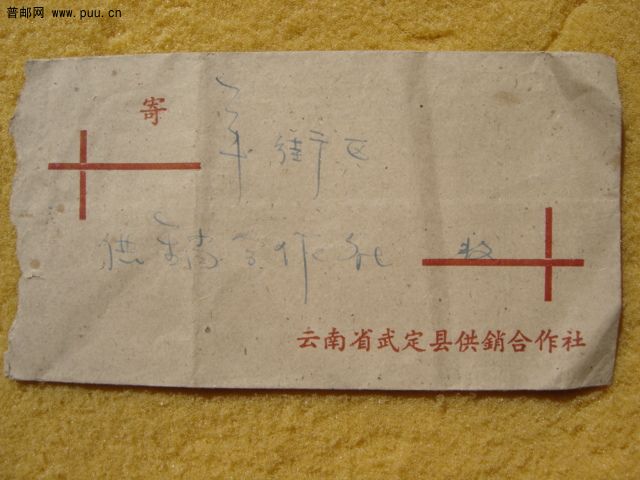 普邮网 www.puu.cn
寄
街区
供销合作社 收
云南省武定县供銷合作社